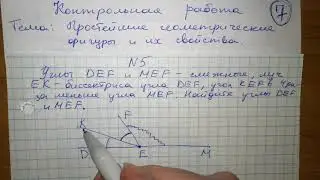 Контрольная работа
7
Тема: Простейшие геометрические
фигуры и их свойства
N5
Углы DEF и MEF - смежные, луч
EK - биссектриса угла DEF, угол KEF в 4 ра-
за меньше угла MEF. Найдите углы DEF
и MEF.
K
F
D
E
M